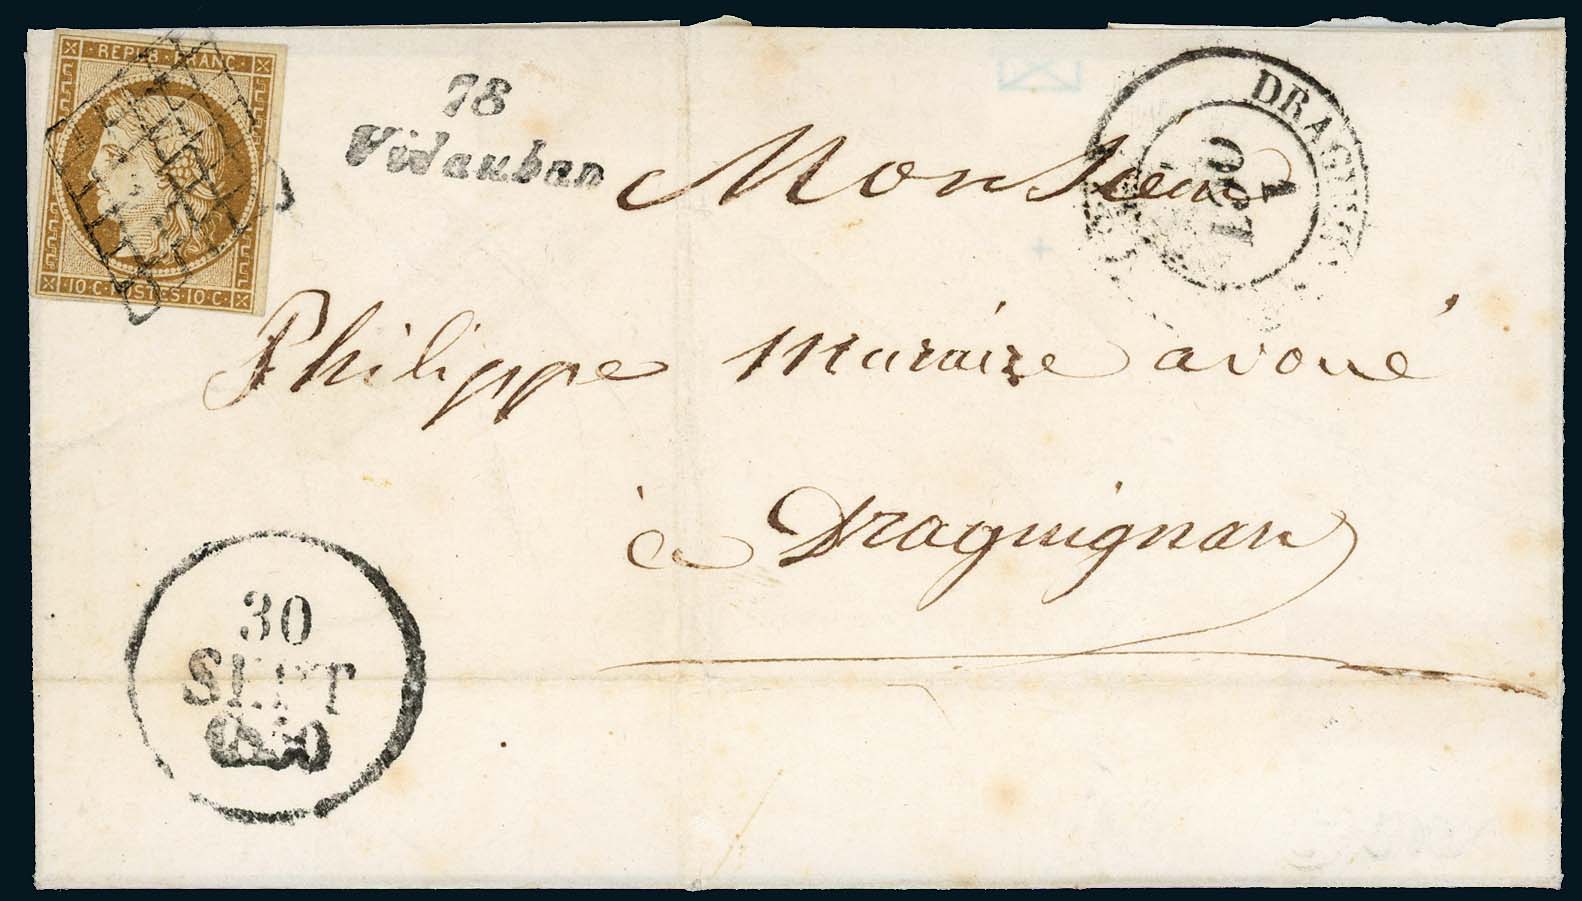 REPUB·FRANC·
10·C·POSTES·10·C·
78
Vidauban
DRAGUIGNAN
1
OCT
Monsieur
Philippe Muraire avoué
à Draguignan
30
SEPT
1850